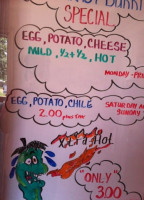 SPECIAL
EGG, POTATO, CHEESE
MILD, ½+½, HOT
MONDAY-
EGG, POTATO, CHILE
SATURDAY
2.00 plus TAX
SUNDAY
XTRA Hot
"ONLY"
3.00